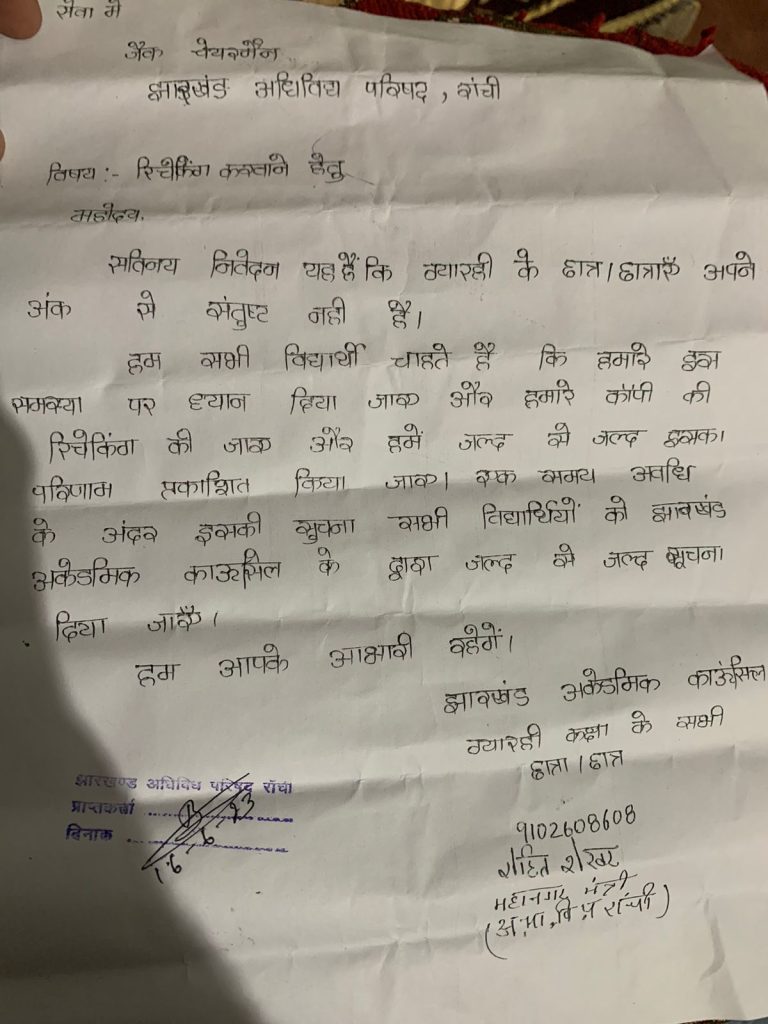 सेवा मे
जैक चेयरमैन
झारखंड अधिविद्य परिषद, रांची
विषय :- रिचेकिंग करवाने हेतु
महोदय.
सविनय निवेदन यह हैं कि ग्यारही के छात्र/छात्राएँ अपने
अंक से संतुष्ट नही है।
हम सभी विद्यार्थी चाहते है कि हमारे इस
समस्या पर ध्यान दिया जाए और हमारे कॉपी की
रिचेकिंग की जाए और हमें जल्द से जल्द इसका
परिणाम प्रकाशित किया जाए। एक समय अवधि
के अंदर इसकी सुचना सभी विद्यार्थियों को झारखंड
अकेडमिक काऊंसिल के द्वारा जल्द से जल्द सूचना
दिया जाएँ।
हम आपके आभारी रहेगें।
झारखंड अकेडमिक काऊंसिल
ग्यारही कक्षा के सभी
छात्रा / छात्र
झारखण्ड अधिविध परिषद राँची
प्राप्तकर्ता
दिनाक 16.6.23
9102608608
रोहित शेखर
महानगर मंत्री
(अ.भा.वि.प रांची)